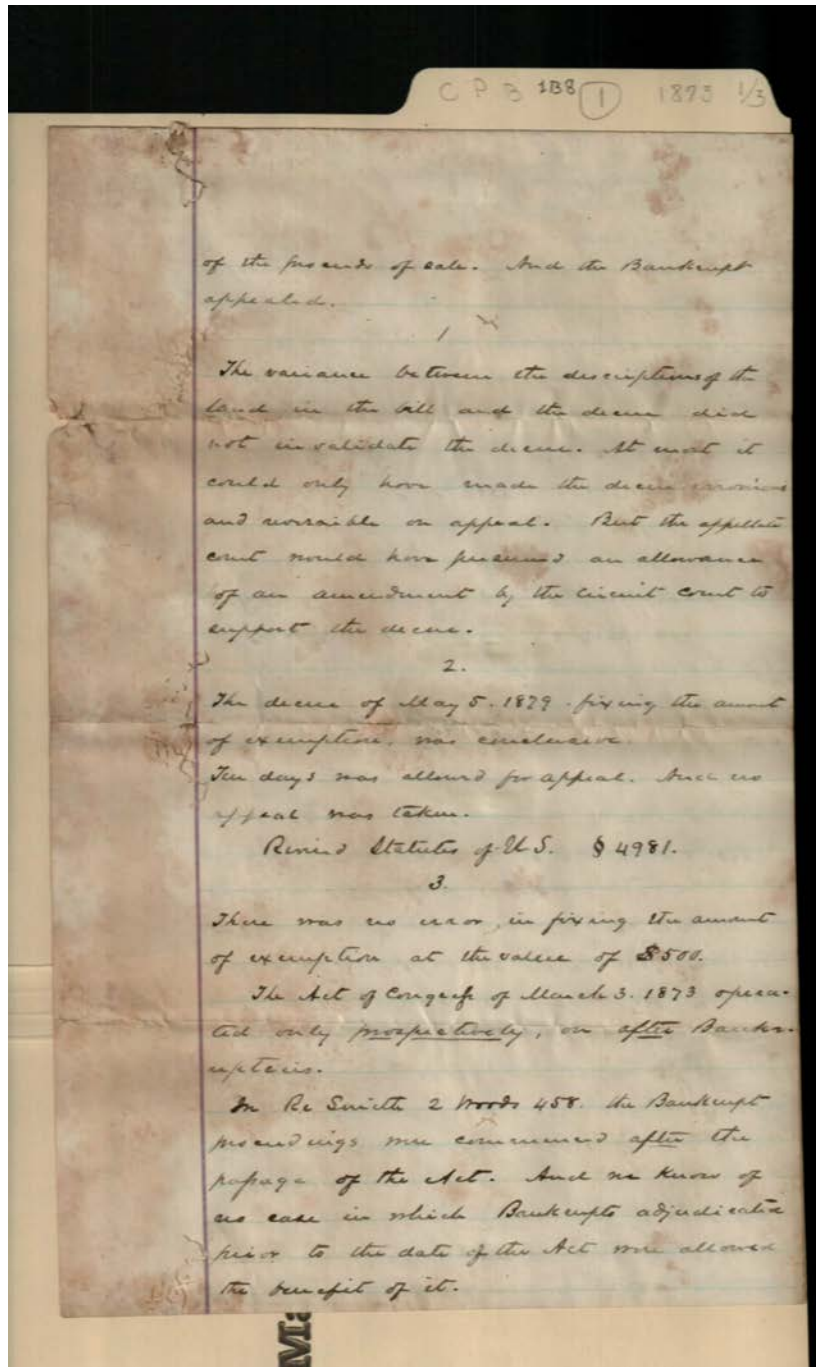 C P B 1B8 1 1873 1/3
of the proceeds of sale. And the Bankrupt
appealed.
1
The variance between the descriptions of the
land in the bill and the decree did
not invalidate the decree. At most it
could only have made the decree erroneous
and reversible on appeal. But the appellate
court would have presumed an allowance
of an amendment by the Circuit Court to
support the decree.
2.
The decree of May 5. 1879. fixing the amount
of exemption, was conclusive.
Ten days was allowed for appeal. And no
appeal was taken.
Revised Statutes of U.S. § 4981.
3.
There was no error, in fixing the amount
of exemption at the value of $500.
The Act of Congress of March 3. 1873 opera-
ted only prospectively, on after Bankr-
uptcies.
In Re Smith 2 Woods 458. the Bankrupt
proceedings were commenced after the
passage of the Act. And we know of
no case in which Bankrupts adjudicated
prior to the date of the Act were allowed
the benefit of it.